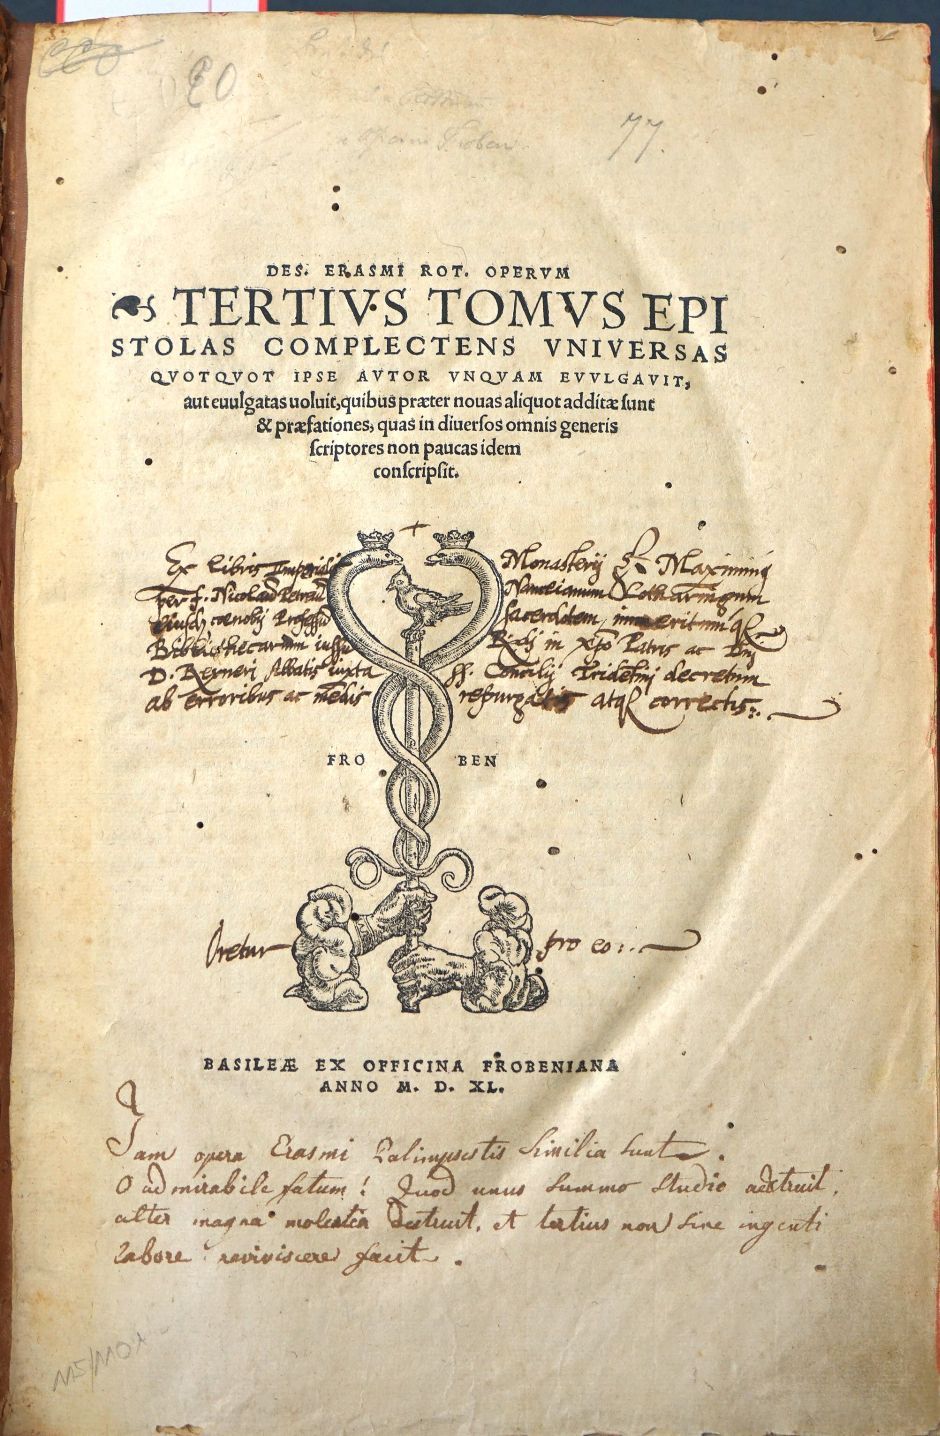 CCO
CO
77.
DES. ERASMI ROT. OPERVM
TERTIVS TOMVS EPI
STOLAS COMPLECTENS VNIVERSAS
QVOTQVOT IPSE AVTOR VNQVAM EVVLGAVIT,
aut euulgatas uoluit, quibus præter nouas aliquot additæ sunt
& præfationes, quas in diuersos omnis generis
scriptores non paucas idem
conscripsit.
Ex libris Monasterij S. Maximini
per f. Nicolaū Nanceianum Lotharingum
sacerdotem
Bibliothecarium iussu Rdi in xpo Patris ac Dni
D. Reyneri Abbatis iuxta ss. Concilij Tridetini decretum
ab erroribus ac mendis repurgatis atq; correctis:.
FRO BEN
Oretur pro eo:.
BASILEÆ EX OFFICINA FROBENIANA
ANNO M. D. XL.
Jam opera Erasmi Palimpsestis Similia sunt.
O admirabile fatum! Quod unus summo studio adstruit,
alter magna molestia destruit, et tertius non sine ingenti
labore reviviscere facit.